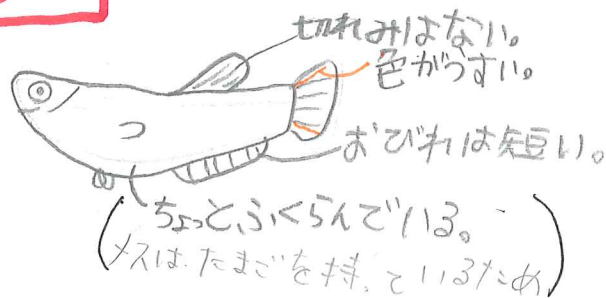 切れみはない。
色がうすい。
おびれは短い。
ちょっと、ふくらんでいる。
(メスは、たまごを持っているため)